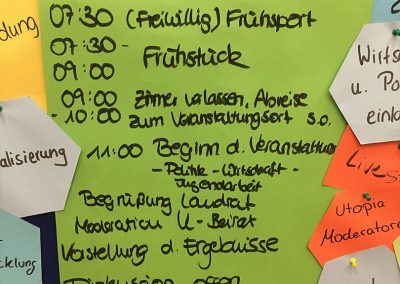 07:30 (Freiwillig) Frühsport
07:30 - Frühstück
09:00
09:00 Zimmer verlassen, Abreise
- 10:00 zum Veranstaltungsort s.o.
11:00 Beginn d. Veranstaltung
- Politik - Wirtschaft -
Jugendarbeit
Begrüßung Landrat
Moderation U-Beirat
Vorstellung d. Ergebnisse
Diskussion offen
dung
alisierung
cklung
Wirtsc
u. Po
einla
LiveS
Utopia
Moderatore